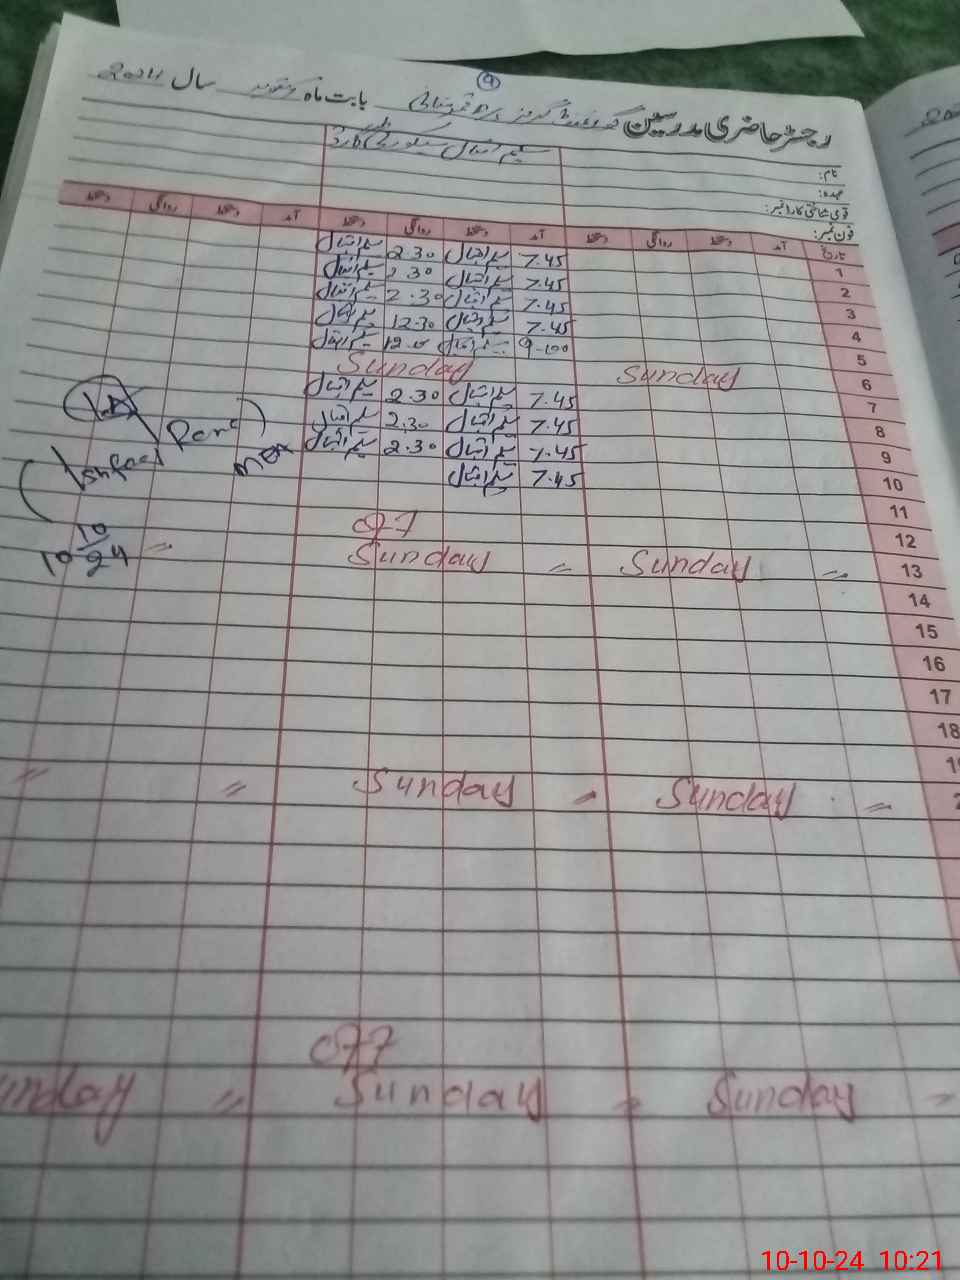 9
رجسٹر حاضری مدرسین گورنمنٹ گرلز بابت ماہ اکتوبر سال 2024
نام: سلیم اقبال
عہدہ: سیکورٹی گارڈ
قومی شناختی کارڈ نمبر:
فون نمبر:
تاریخ آمد دستخط روانگی دستخط آمد دستخط روانگی دستخط آمد دستخط روانگی دستخط
1 7.45 سلیم اقبال 2.30 سلیم اقبال
2 7.45 سلیم اقبال 2.30 سلیم اقبال
3 7.45 سلیم اقبال 2.30 سلیم اقبال
4 7.45 سلیم اقبال 12.30 سلیم اقبال
5 9-00 سلیم اقبال 12.0 سلیم اقبال
6 Sunday Sunday
7 7.45 سلیم اقبال 2.30 سلیم اقبال
8 7.45 سلیم اقبال 2.30 سلیم اقبال
9 7.45 سلیم اقبال 2.30 سلیم اقبال
10 7.45 سلیم اقبال
11
12 077
13 〃 Sunday 〃 Sunday 〃
14
15
16
17
18
〃 Sunday 〃 Sunday 〃 〃
077
Sunday 〃 Sunday 〃 Sunday 〃
Ishfaq
MEA
10
10-24
10-10-24 10:21